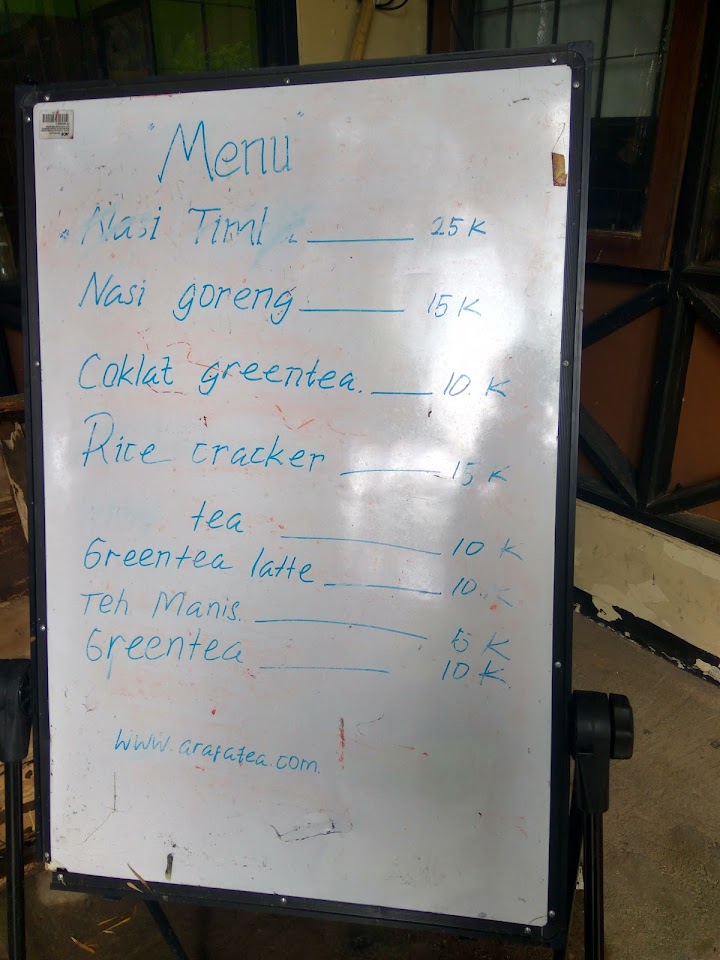 "Menu"
Nasi Timl 25 K
Nasi goreng 15 K
Coklat greentea. 10. K
Rice cracker 15 K
tea 10 K
Greentea latte 10.. K
Teh Manis. 5 K
Greentea 10 K
www.arafatea.com.